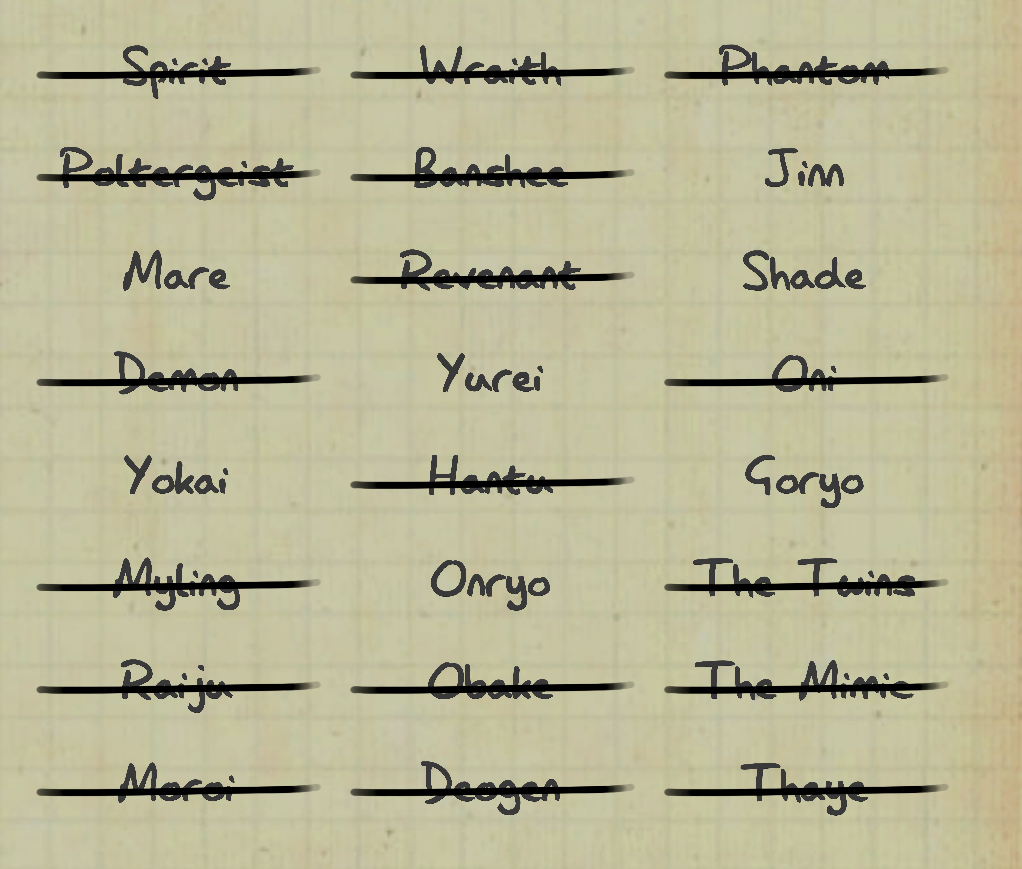 Spirit Wraith Phantom
Poltergeist Banshee Jinn
Mare Revenant Shade
Demon Yurei Oni
Yokai Hantu Goryo
Myling Onryo The Twins
Raiju Obake The Mimic
Moroi Deogen Thaye